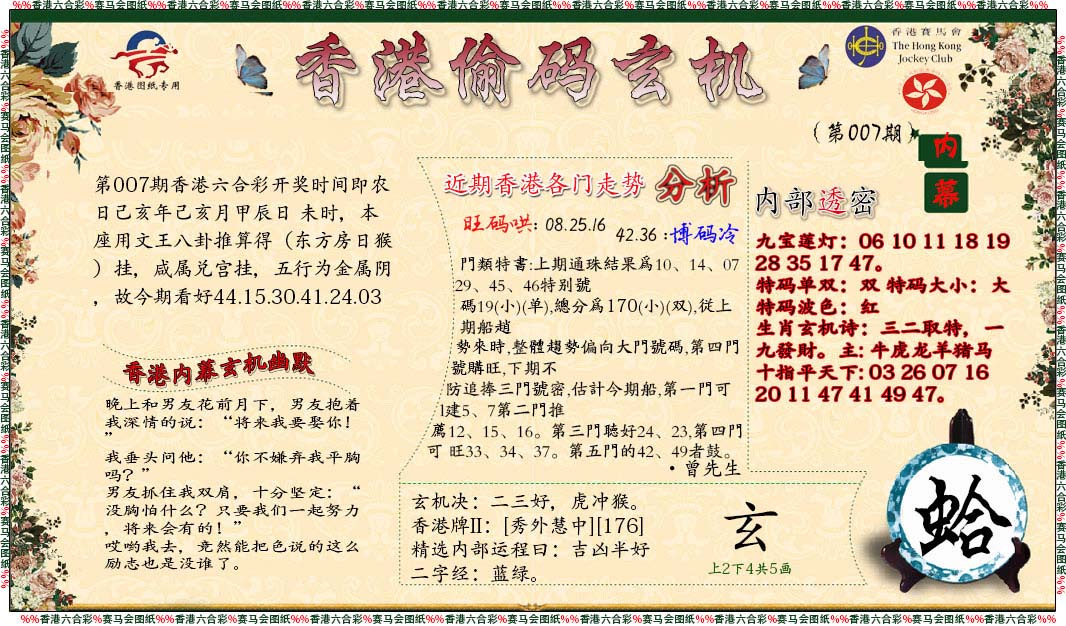 %%香港六合彩%赛马会图纸%%香港六合彩%赛马会图纸%%香港六合彩%赛马会图纸%%香港六合彩%赛马会图纸%%香港六合彩%赛马会图纸%%香港六合彩%%
香港图纸专用
香港偷码玄机
香港賽馬會
The Hong Kong
Jockey Club
(第007期)
内
幕
第007期香港六合彩开奖时间即农
日己亥年己亥月甲辰日 未时，本
座用文王八卦推算得（东方房日猴
）挂，咸属兑宫挂，五行为金属阴
，故今期看好44.15.30.41.24.03
香港内幕玄机幽默
晚上和男友花前月下，男友抱着
我深情的说：“将来我要娶你！
”
我垂头问他：“你不嫌弃我平胸
吗？”
男友抓住我双肩，十分坚定：“
没胸怕什么？只要我们一起努力
，将来会有的！”
哎哟我去，竟然能把色说的这么
励志也是没谁了。
近期香港各门走势 分析
旺码哄: 08.25.16
42.36 :博码冷
門類特書:上期通珠結果爲10、14、07
29、45、46特别號
碼19(小)(单),總分爲170(小)(双),從上
期船趟
勢來時,整體趨勢偏向大門號碼,第四門
號購旺,下期不
防追捧三門號密,估计今期船,第一門可
1建5、7第二門推
薦12、15、16。第三門聴好24、23,第四門
可 旺33、34、37。第五門的42、49者鼓。
·曾先生
玄机决：二三好，虎冲猴。
香港牌II：[秀外慧中][176]
精选内部运程曰：吉凶半好
二字经：蓝绿。
玄
上2下4共5画
内部透密
九宝莲灯：06 10 11 18 19
28 35 17 47。
特码单双：双 特码大小：大
特码波色：红
生肖玄机诗：三二取特，一
九發财。主: 牛虎龙羊猪马
十指平天下: 03 26 07 16
20 11 47 41 49 47。
蛤
%%香港六合彩%赛马会图纸%%香港六合彩%赛马会图纸%%香港六合彩%赛马会图纸%%香港六合彩%赛马会图纸%%香港六合彩%赛马会图纸%%香港六合彩%%